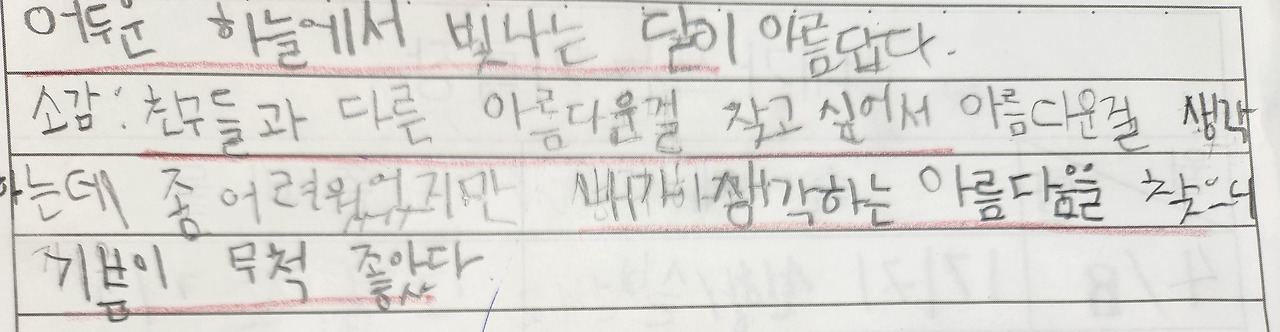 어두운 하늘에서 빛나는 달이 아름답다.
소감: 친구들과 다른 아름다운걸 찾고 싶어서 아름다운걸 생각
하는데 좀 어려웠었지만 생각하는 아름다움을 찾으니
기분이 무척 좋았다